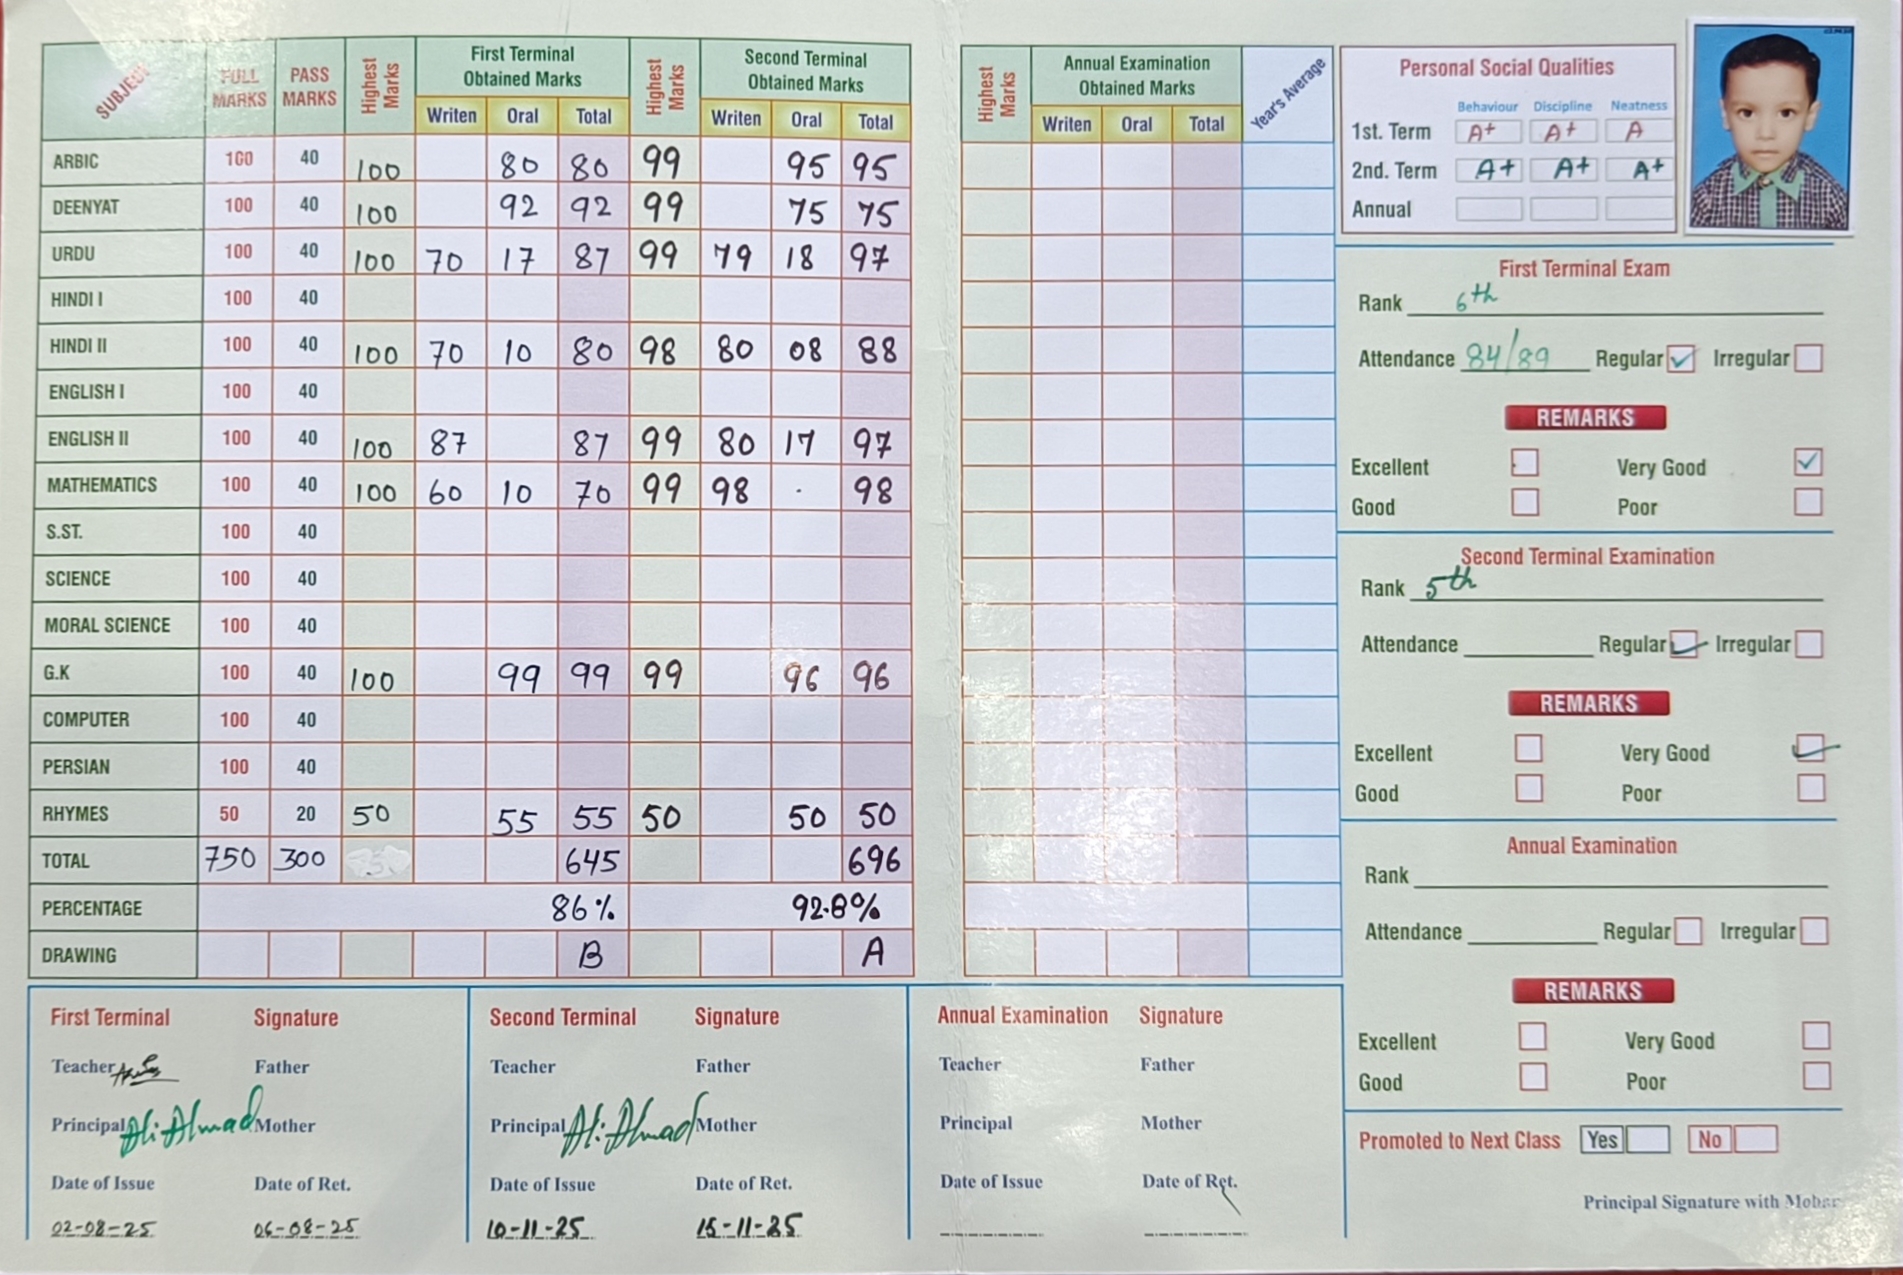 SUBJECT FULL MARKS PASS MARKS Highest Marks First Terminal Obtained Marks Highest Marks Second Terminal Obtained Marks
Writen Oral Total Writen Oral Total
ARBIC 100 40 100 80 80 99 95 95
DEENYAT 100 40 100 92 92 99 75 75
URDU 100 40 100 70 17 87 99 79 18 97
HINDI I 100 40
HINDI II 100 40 100 70 10 80 98 80 08 88
ENGLISH I 100 40
ENGLISH II 100 40 100 87 87 99 80 17 97
MATHEMATICS 100 40 100 60 10 70 99 98 . 98
S.ST. 100 40
SCIENCE 100 40
MORAL SCIENCE 100 40
G.K 100 40 100 99 99 99 96 96
COMPUTER 100 40
PERSIAN 100 40
RHYMES 50 20 50 55 55 50 50 50
TOTAL 750 300 645 696
PERCENTAGE 86% 92.8%
DRAWING B A
Highest Marks Annual Examination Obtained Marks Year's Average
Writen Oral Total
Personal Social Qualities
Behaviour Discipline Neatness
1st. Term A+ A+ A
2nd. Term A+ A+ A+
Annual
First Terminal Exam
Rank 6th
Attendance 84/89 Regular ✓ Irregular
REMARKS
Excellent Very Good ✓
Good Poor
Second Terminal Examination
Rank 5th
Attendance Regular ✓ Irregular
REMARKS
Excellent Very Good ✓
Good Poor
Annual Examination
Rank
Attendance Regular Irregular
REMARKS
Excellent Very Good
Good Poor
Promoted to Next Class Yes No
Principal Signature with Mohar
First Terminal Signature
Teacher Father
Principal Ali Ahmad Mother
Date of Issue Date of Ret.
02-08-25 06-08-25
Second Terminal Signature
Teacher Father
Principal Ali Ahmad Mother
Date of Issue Date of Ret.
10-11-25 15-11-25
Annual Examination Signature
Teacher Father
Principal Mother
Date of Issue Date of Ret.